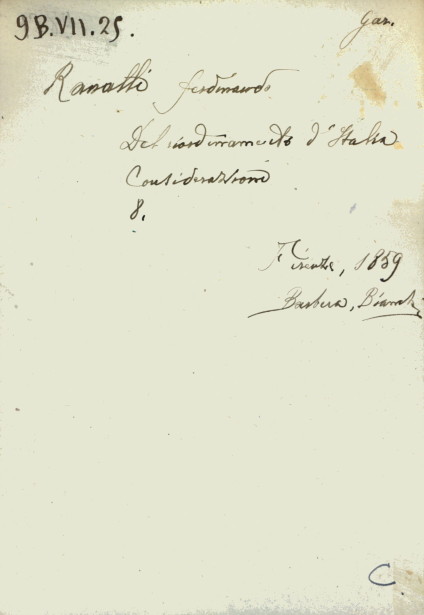 9B.VII.25.
Gar.
Ranalli Ferdinando
Del riordinamento d'Italia
Considerazioni
8.
Firenze, 1859
Barbera, Bianchi
C